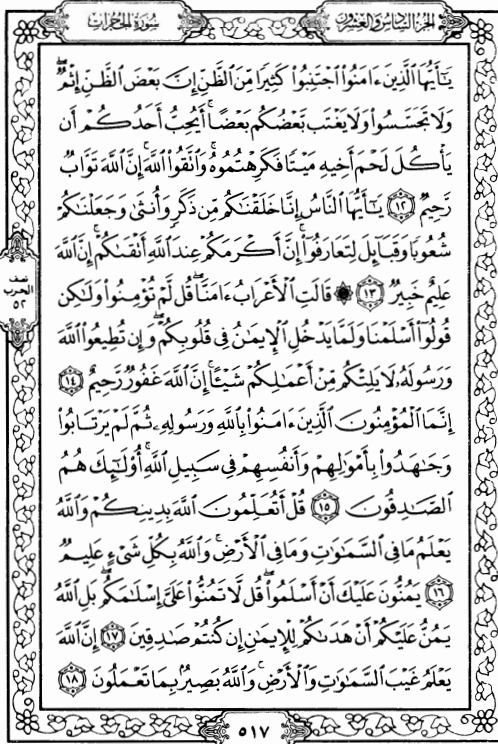 سُورَةُ الحُجُرَاتِ
الجُزْءُ السَّادِسُ وَالعِشْرُونَ
يَٰٓأَيُّهَا ٱلَّذِينَ ءَامَنُوا۟ ٱجْتَنِبُوا۟ كَثِيرًا مِّنَ ٱلظَّنِّ إِنَّ بَعْضَ ٱلظَّنِّ إِثْمٌ ۖ
وَلَا تَجَسَّسُوا۟ وَلَا يَغْتَب بَّعْضُكُم بَعْضًا ۚ أَيُحِبُّ أَحَدُكُمْ أَن
يَأْكُلَ لَحْمَ أَخِيهِ مَيْتًا فَكَرِهْتُمُوهُ ۚ وَٱتَّقُوا۟ ٱللَّهَ ۚ إِنَّ ٱللَّهَ تَوَّابٌ
رَّحِيمٌ ١٢ يَٰٓأَيُّهَا ٱلنَّاسُ إِنَّا خَلَقْنَٰكُم مِّن ذَكَرٍ وَأُنثَىٰ وَجَعَلْنَٰكُمْ
شُعُوبًا وَقَبَآئِلَ لِتَعَارَفُوٓا۟ ۚ إِنَّ أَكْرَمَكُمْ عِندَ ٱللَّهِ أَتْقَىٰكُمْ ۚ إِنَّ ٱللَّهَ
عَلِيمٌ خَبِيرٌ ١٣ ۞ قَالَتِ ٱلْأَعْرَابُ ءَامَنَّا ۖ قُل لَّمْ تُؤْمِنُوا۟ وَلَٰكِن
قُولُوٓا۟ أَسْلَمْنَا وَلَمَّا يَدْخُلِ ٱلْإِيمَٰنُ فِى قُلُوبِكُمْ ۖ وَإِن تُطِيعُوا۟ ٱللَّهَ
وَرَسُولَهُۥ لَا يَلِتْكُم مِّنْ أَعْمَٰلِكُمْ شَيْـًٔا ۚ إِنَّ ٱللَّهَ غَفُورٌ رَّحِيمٌ ١٤
إِنَّمَا ٱلْمُؤْمِنُونَ ٱلَّذِينَ ءَامَنُوا۟ بِٱللَّهِ وَرَسُولِهِۦ ثُمَّ لَمْ يَرْتَابُوا۟
وَجَٰهَدُوا۟ بِأَمْوَٰلِهِمْ وَأَنفُسِهِمْ فِى سَبِيلِ ٱللَّهِ ۚ أُو۟لَٰٓئِكَ هُمُ
ٱلصَّٰدِقُونَ ١٥ قُلْ أَتُعَلِّمُونَ ٱللَّهَ بِدِينِكُمْ وَٱللَّهُ
يَعْلَمُ مَا فِى ٱلسَّمَٰوَٰتِ وَمَا فِى ٱلْأَرْضِ ۚ وَٱللَّهُ بِكُلِّ شَىْءٍ عَلِيمٌ
١٦ يَمُنُّونَ عَلَيْكَ أَنْ أَسْلَمُوا۟ ۖ قُل لَّا تَمُنُّوا۟ عَلَىَّ إِسْلَٰمَكُم ۖ بَلِ ٱللَّهُ
يَمُنُّ عَلَيْكُمْ أَنْ هَدَىٰكُمْ لِلْإِيمَٰنِ إِن كُنتُمْ صَٰدِقِينَ ١٧ إِنَّ ٱللَّهَ
يَعْلَمُ غَيْبَ ٱلسَّمَٰوَٰتِ وَٱلْأَرْضِ ۚ وَٱللَّهُ بَصِيرٌۢ بِمَا تَعْمَلُونَ ١٨
نصف
الحزب
٥٢
٥١٧